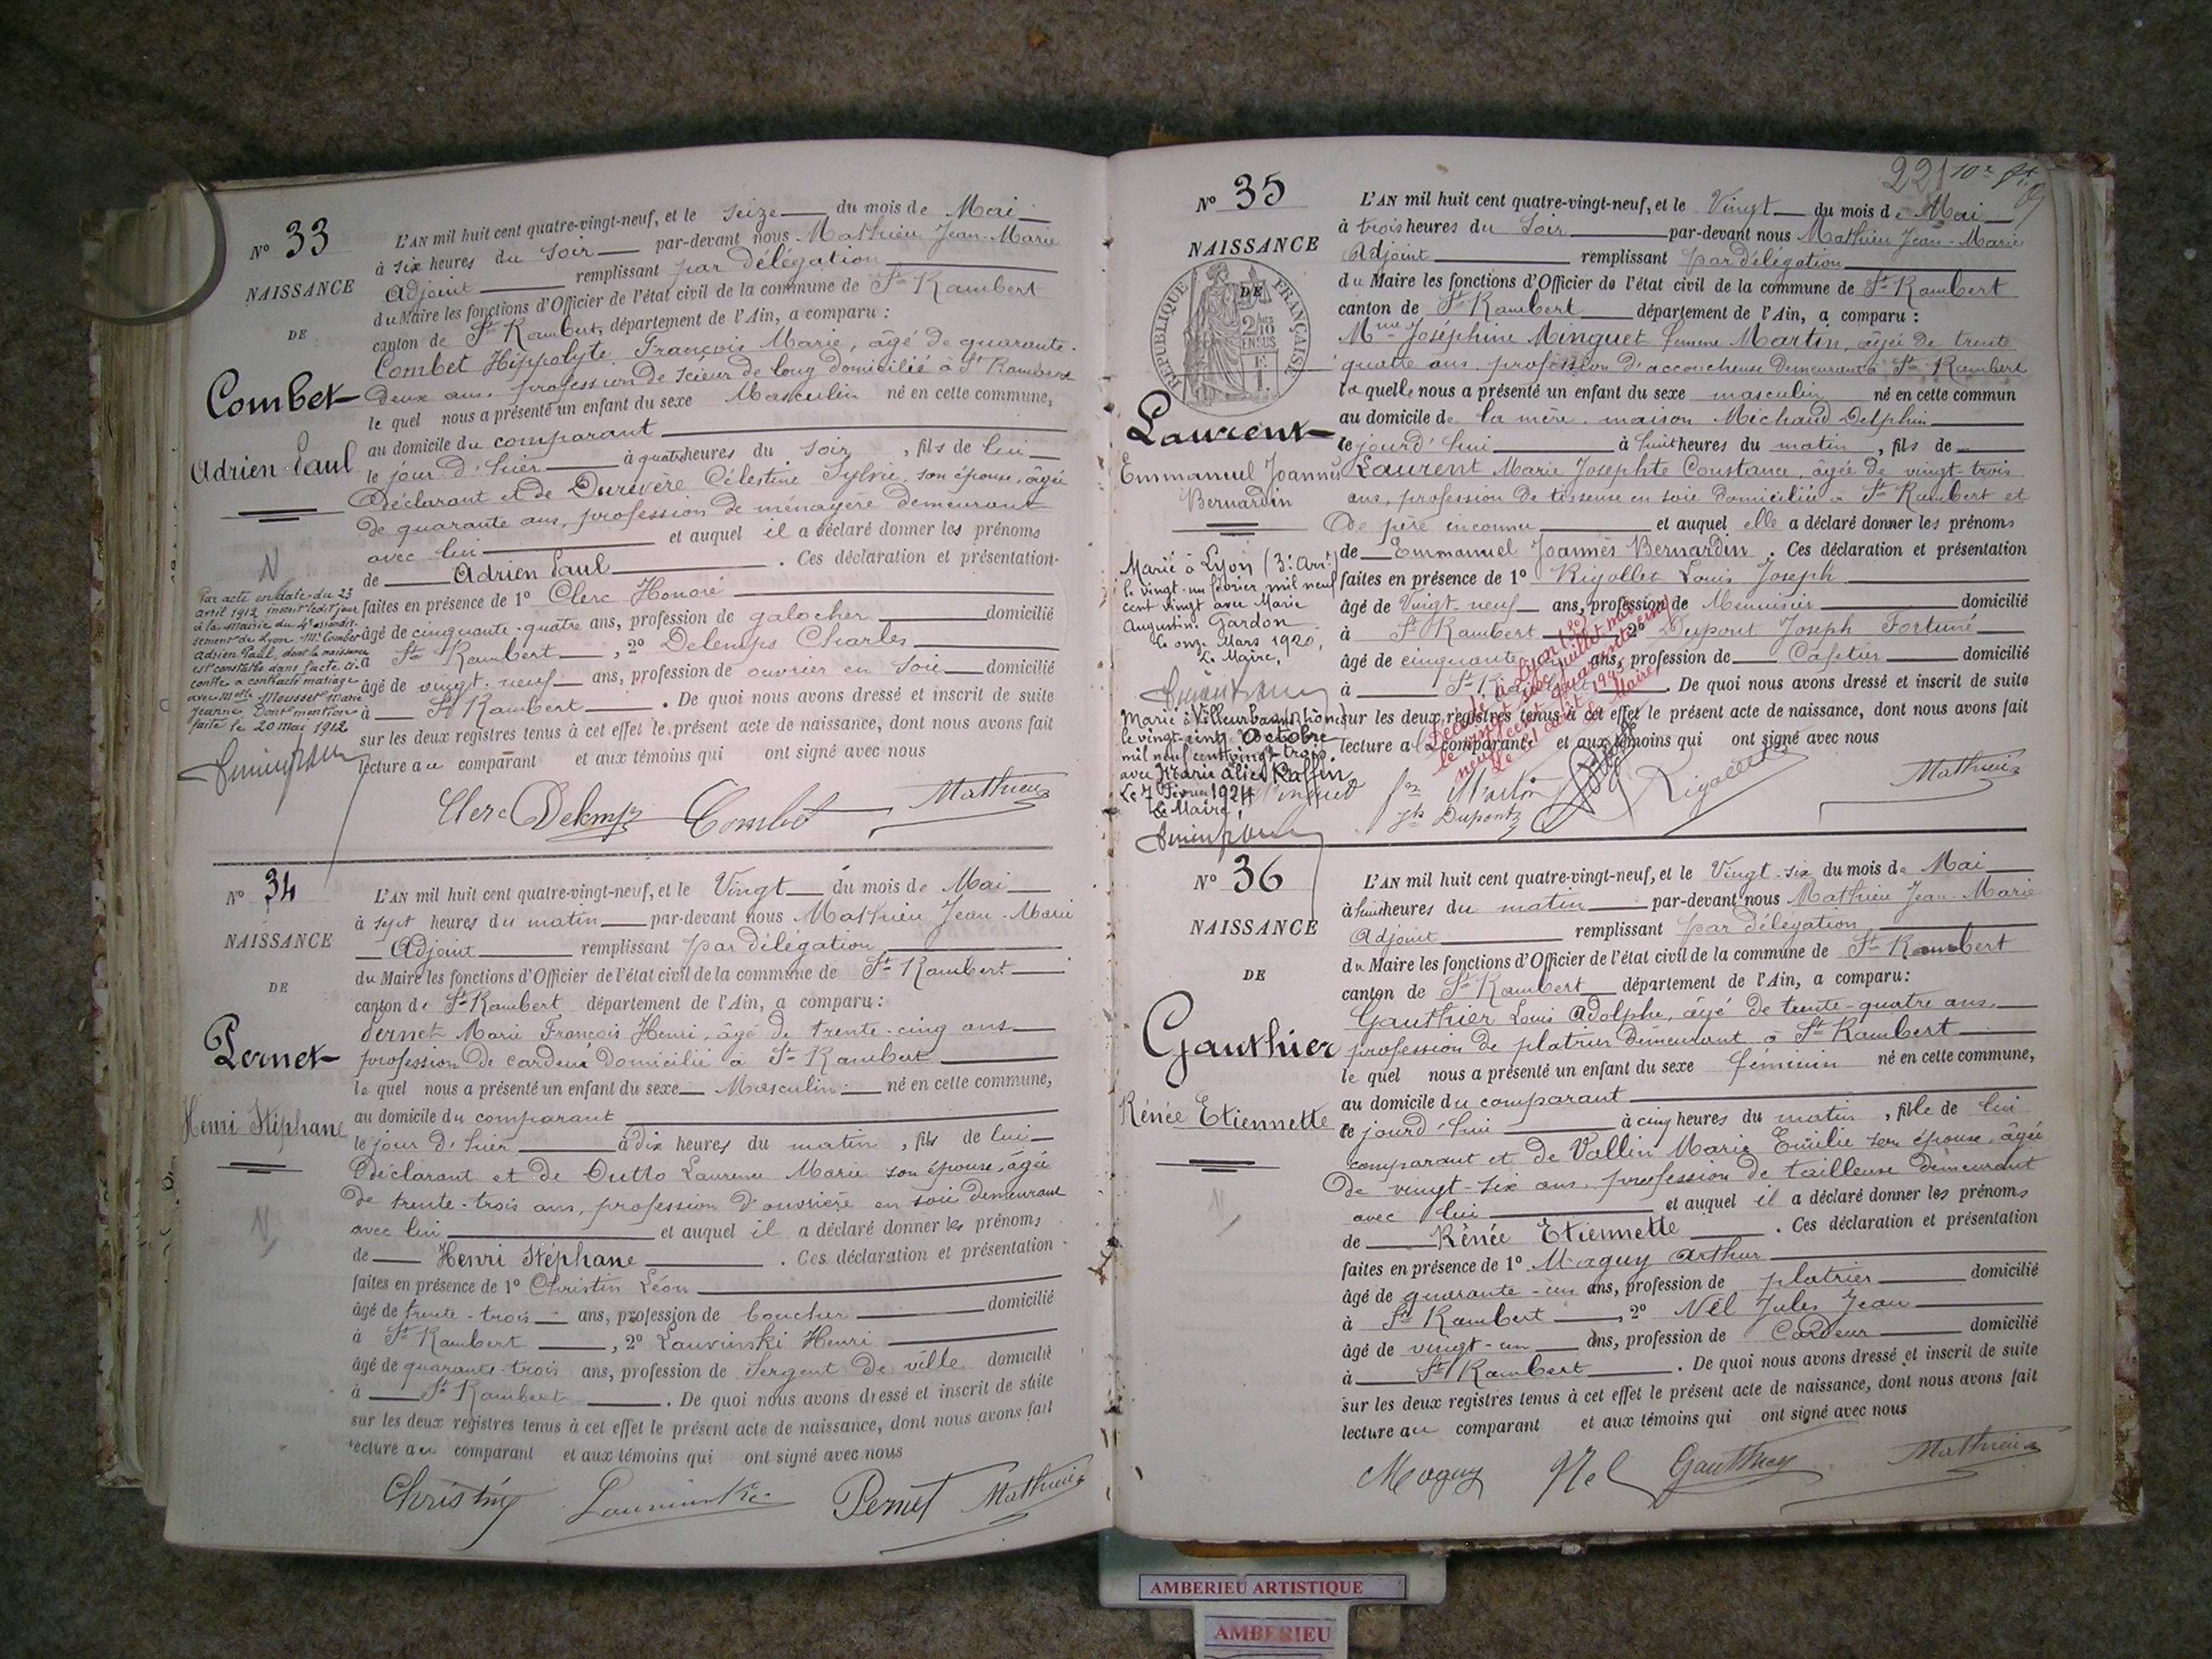 N° 33
NAISSANCE
DE
Combet
Adrien Paul
N
Par acte en date du 23
avril 1912 inscrit ledit jour
à la Mairie du 4e arrondis-
sement de Lyon Mr Combet
Adrien Paul, dont la naissance
est constatée dans l'acte ci-
contre a contracté mariage
avec Melle Mousset Marie
Jeanne Dont mention
faite le 20 Mai 1912
L'AN mil huit cent quatre-vingt-neuf, et le seize du mois de Mai
à six heures du soir par-devant nous Mathieu Jean-Marie
Adjoint remplissant par délégation
du Maire les fonctions d'Officier de l'état civil de la commune de St Rambert
canton de St Rambert, département de l'Ain, a comparu :
Combet Hippolyte François Marie, âgé de quarante-
deux ans, profession de scieur de long domicilié à St Rambert
le quel nous a présenté un enfant du sexe Masculin né en cette commune,
au domicile du comparant
le jour d'hier à quatre heures du soir, fils de lui
déclarant et de Durevère Célestine Sylvie, son épouse, âgée
de quarante ans, profession de ménagère demeurant
avec lui et auquel il a déclaré donner les prénoms
de Adrien Paul. Ces déclaration et présentation
faites en présence de 1° Clerc Honoré
âgé de cinquante-quatre ans, profession de galocher domicilié
à St Rambert, 2° Delemps Charles
âgé de vingt-neuf ans, profession de ouvrier en soie domicilié
à St Rambert. De quoi nous avons dressé et inscrit de suite
sur les deux registres tenus à cet effet le présent acte de naissance, dont nous avons fait
lecture au comparant et aux témoins qui ont signé avec nous
Clerc Delemps Combet Mathieu
N° 34
NAISSANCE
DE
Pernet
Henri Stéphane
N
L'AN mil huit cent quatre-vingt-neuf, et le Vingt du mois de Mai
à sept heures du matin par-devant nous Mathieu Jean-Marie
Adjoint remplissant par délégation
du Maire les fonctions d'Officier de l'état civil de la commune de St Rambert
canton de St Rambert département de l'Ain, a comparu :
Pernet Marie François Henri, âgé de trente-cinq ans
profession de cardeur domicilié à St Rambert
le quel nous a présenté un enfant du sexe Masculin né en cette commune,
au domicile du comparant
le jour d'hier à dix heures du matin, fils de lui
déclarant et de Dutto Laurence Marie son épouse, âgée
de trente-trois ans, profession d'ouvrière en soie demeurant
avec lui et auquel il a déclaré donner les prénoms
de Henri Stéphane. Ces déclaration et présentation
faites en présence de 1° Christin Léon
âgé de trente-trois ans, profession de boucher domicilié
à St Rambert, 2° Lauvinski Henri
âgé de quarante-trois ans, profession de Sergent de ville domicilié
à St Rambert. De quoi nous avons dressé et inscrit de suite
sur les deux registres tenus à cet effet le présent acte de naissance, dont nous avons fait
lecture au comparant et aux témoins qui ont signé avec nous
Christin Lauvinski Pernet Mathieu
221 10e
N° 35
NAISSANCE
DE
RÉPUBLIQUE FRANÇAISE
Laurent
Emmanuel Joannès
Bernardin
Marié à Lyon (3e Arrt)
le vingt-un février mil neuf
cent vingt avec Marie
Augustine Gardon
Le onze Mars 1920
Le Maire,
Marié à Villeurbanne (Rhône)
le vingt-cinq Octobre
mil neuf cent vingt-trois
avec Marie Alice Raffin
Le 7 Février 1924
Le Maire,
L'AN mil huit cent quatre-vingt-neuf, et le Vingt du mois de Mai
à trois heures du Soir par-devant nous Mathieu Jean-Marie
Adjoint remplissant par délégation
du Maire les fonctions d'Officier de l'état civil de la commune de St Rambert
canton de St Rambert département de l'Ain, a comparu :
Mme Joséphine Minguet femme Martin, âgée de trente
quatre ans, profession d'accoucheuse demeurant à St Rambert
la quelle nous a présenté un enfant du sexe masculin né en cette commun
au domicile de la mère, maison Michaud Delphin
le jourd'hui à huit heures du matin, fils de
Laurent Marie Josephte Constance, âgée de vingt-trois
ans, profession de tisseuse en soie domiciliée à St Rambert et
de père inconnu et auquel elle a déclaré donner les prénoms
de Emmanuel Joannès Bernardin. Ces déclaration et présentation
faites en présence de 1° Rigollet Louis Joseph
âgé de Vingt-neuf ans, profession de Menuisier domicilié
à St Rambert 2° Dupont Joseph Fortuné
âgé de cinquante ans, profession de Cafetier domicilié
à St Rambert. De quoi nous avons dressé et inscrit de suite
sur les deux registres tenus à cet effet le présent acte de naissance, dont nous avons fait
lecture a la comparante et aux témoins qui ont signé avec nous
Décédé à Lyon
le vingt juillet mil
neuf cent quarante cinq
Le août 1945
Le Maire,
Minguet fme Martin Rigollet Mathieu
Jh Dupont
N° 36
NAISSANCE
DE
Gauthier
Rénée Etiennette
N
L'AN mil huit cent quatre-vingt-neuf, et le Vingt-six du mois de Mai
à huit heures du matin par-devant nous Mathieu Jean-Marie
Adjoint remplissant par délégation
du Maire les fonctions d'Officier de l'état civil de la commune de St Rambert
canton de St Rambert département de l'Ain, a comparu:
Gauthier Louis Adolphe, âgé de trente-quatre ans
profession de platrier demeurant à St Rambert
le quel nous a présenté un enfant du sexe féminin né en cette commune,
au domicile du comparant
le jourd'hui à cinq heures du matin, fille de lui
comparant et de Vallin Marie Emilie son épouse, âgée
de vingt-six ans, profession de tailleuse demeurant
avec lui et auquel il a déclaré donner les prénoms
de Rénée Etiennette. Ces déclaration et présentation
faites en présence de 1° Maguy Arthur
âgé de quarante-un ans, profession de platrier domicilié
à St Rambert, 2° Nel Jules Jean
âgé de vingt-un ans, profession de Cardeur domicilié
à St Rambert. De quoi nous avons dressé et inscrit de suite
sur les deux registres tenus à cet effet le présent acte de naissance, dont nous avons fait
lecture au comparant et aux témoins qui ont signé avec nous
Maguy Nel Gauthier Mathieu
AMBERIEU ARTISTIQUE
AMBERIEU